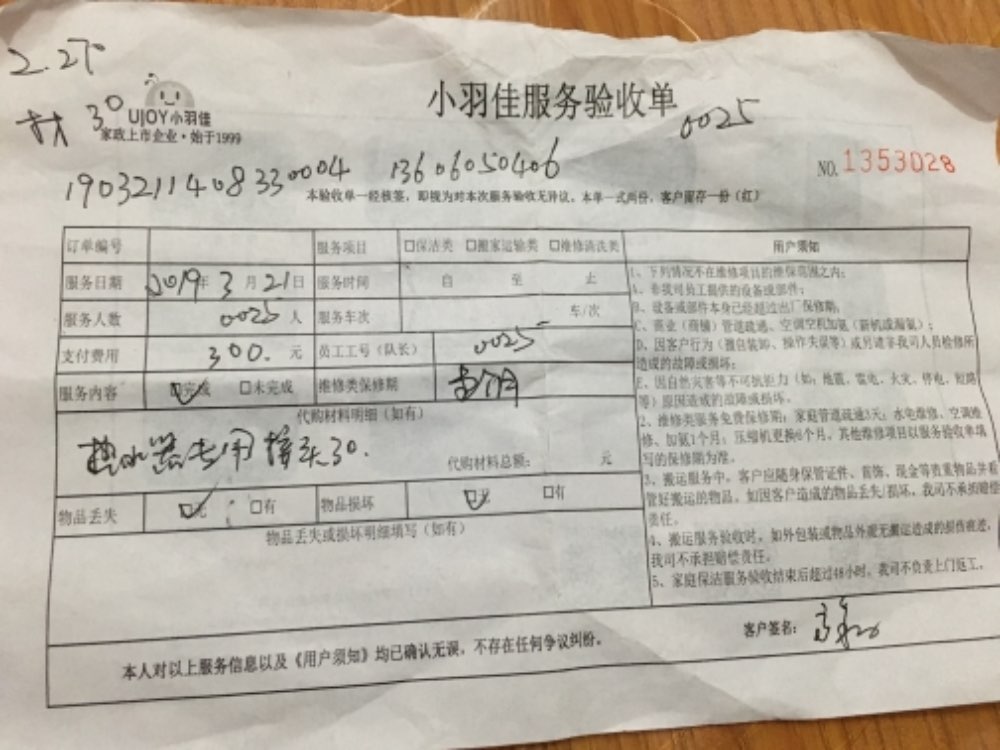 2.270
材 30
UJOY小羽佳
家政上市企业·始于1999
小羽佳服务验收单
0025
NO.1353028
1903211408330004 13606050406
本验收单一经核签，即视为对本次服务验收无异议。本单一式两份，客户留存一份（红）
订单编号 服务项目 □保洁类 □搬家运输类 □维修清洗类
服务日期 2019年3月21日 服务时间 自 至 止
服务人数 0025 人 服务车次 车/次
支付费用 300. 元 员工工号（队长） 0025
服务内容 ☑完成 □未完成 维修类保修期
代购材料明细（如有）
热水器专用接头30.
代购材料总额： 元
物品丢失 ☑无 □有 物品损坏 ☑无 □有
物品丢失或损坏明细填写（如有）
用户须知
1、下列情况不在维修项目的维保范围之内：
A、非我司员工提供的设备或部件；
B、设备或部件本身已经超过出厂保修期；
C、商业（商铺）管道疏通、空调空机加氨（新机或漏氨）；
D、因客户行为（擅包装卸、操作失误等）或另请非我司人员检修所
造成的故障或损坏；
E、因自然灾害等不可抗拒力（如：地震、雷电、火灾、停电、短路
等）原因造成的故障或损坏。
2、维修类服务免费保修期：家庭管道疏通3天；水电维修、空调维
修、加氨1个月；压缩机更换6个月，其他维修项目以服务验收单填
写的保修期为准。
3、搬运服务中，客户应随身保管证件、首饰、现金等贵重物品并看
管好搬运的物品，如因客户造成的物品丢失/损坏，我司不承担赔偿
责任。
4、搬运服务验收时，如外包装或物品外观无搬运造成的损伤痕迹，
我司不承担赔偿责任。
5、家庭保洁服务验收结束后超过48小时，我司不负责上门返工。
本人对以上服务信息以及《用户须知》均已确认无误，不存在任何争议纠纷。
客户签名：